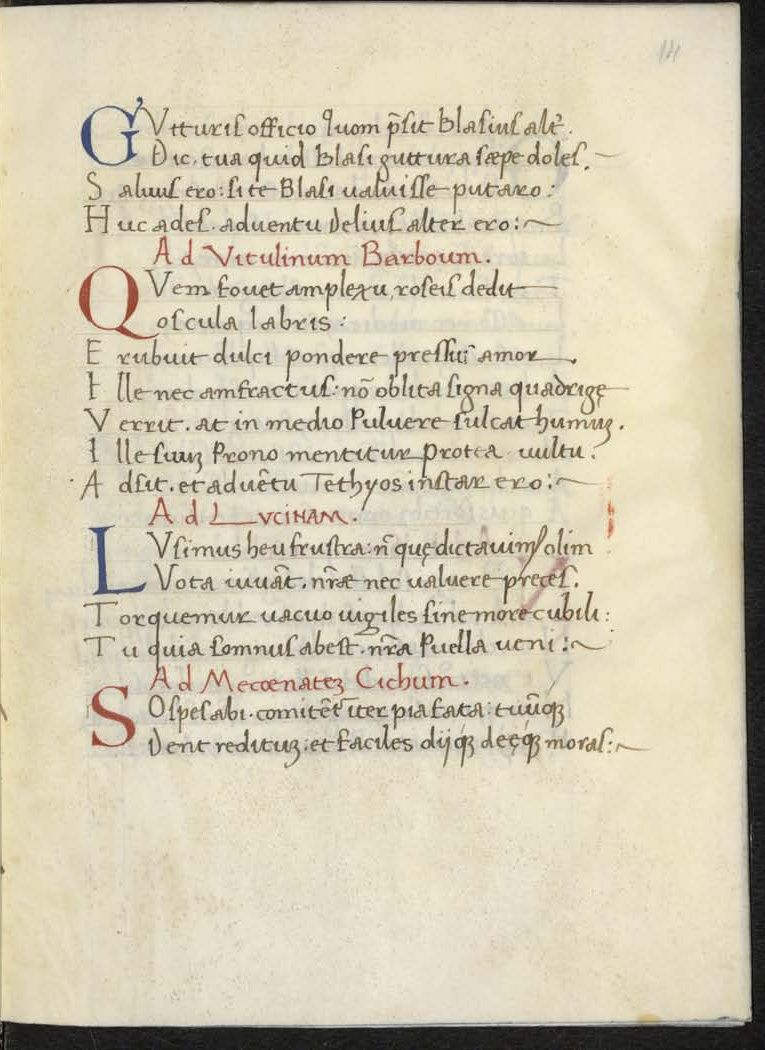 14
GVtturis officio quom p̄sit Blasius alt᷑.
Dic, tua quid Blasi guttura sæpe doles.
Saluus ero: si te Blasi ualuisse putaro:
Huc ades. aduentu Delius alter ero:~
Ad Vitulinum Barboum.
QVem fouet amplexu, roseis dedit
oscula labris:
Erubuit dulci pondere pressus amor.
Ille nec amfractus: nō oblita signa quadrigę
Verrit. at in medio Puluere sulcat humuꝫ.
Ille suuꝫ Prono mentitur protea uultu.
Adsit. et aduētu Tethyos instar ero:~
Ad LVCINAM.
LVsimus heu frustra: n̄ quę dictauimꝰ olim
Vota iuuāt. nr̄æ nec ualuere preces.
Torquemur uacuo uigiles sine more cubili:
Tu quia somnus abest. nr̄a Puella ueni:~
Ad Mecœnateꝫ Cichum.
SOspes abi. comitēt iter pia fata: tuūqꝫ
Dent redituꝫ: et faciles dijqꝫ deęqꝫ moras:~